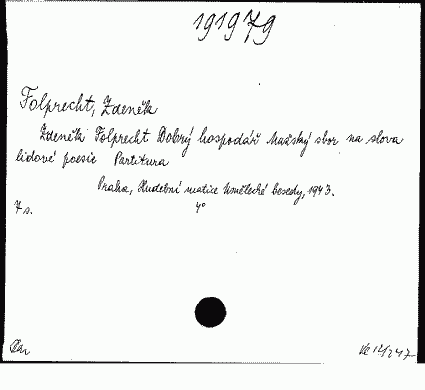 191979
Folprecht, Zdeněk
Zdeněk Folprecht Dobrý hospodář Mužský sbor na slova
lidové poesie Partitura
Praha, Hudební matice Umělecké besedy, 1943.
7 s. 4°